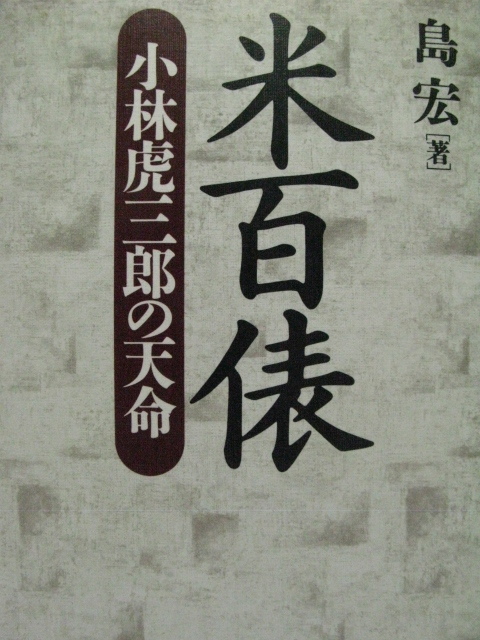 島宏[著]
米百俵
小林虎三郎の天命